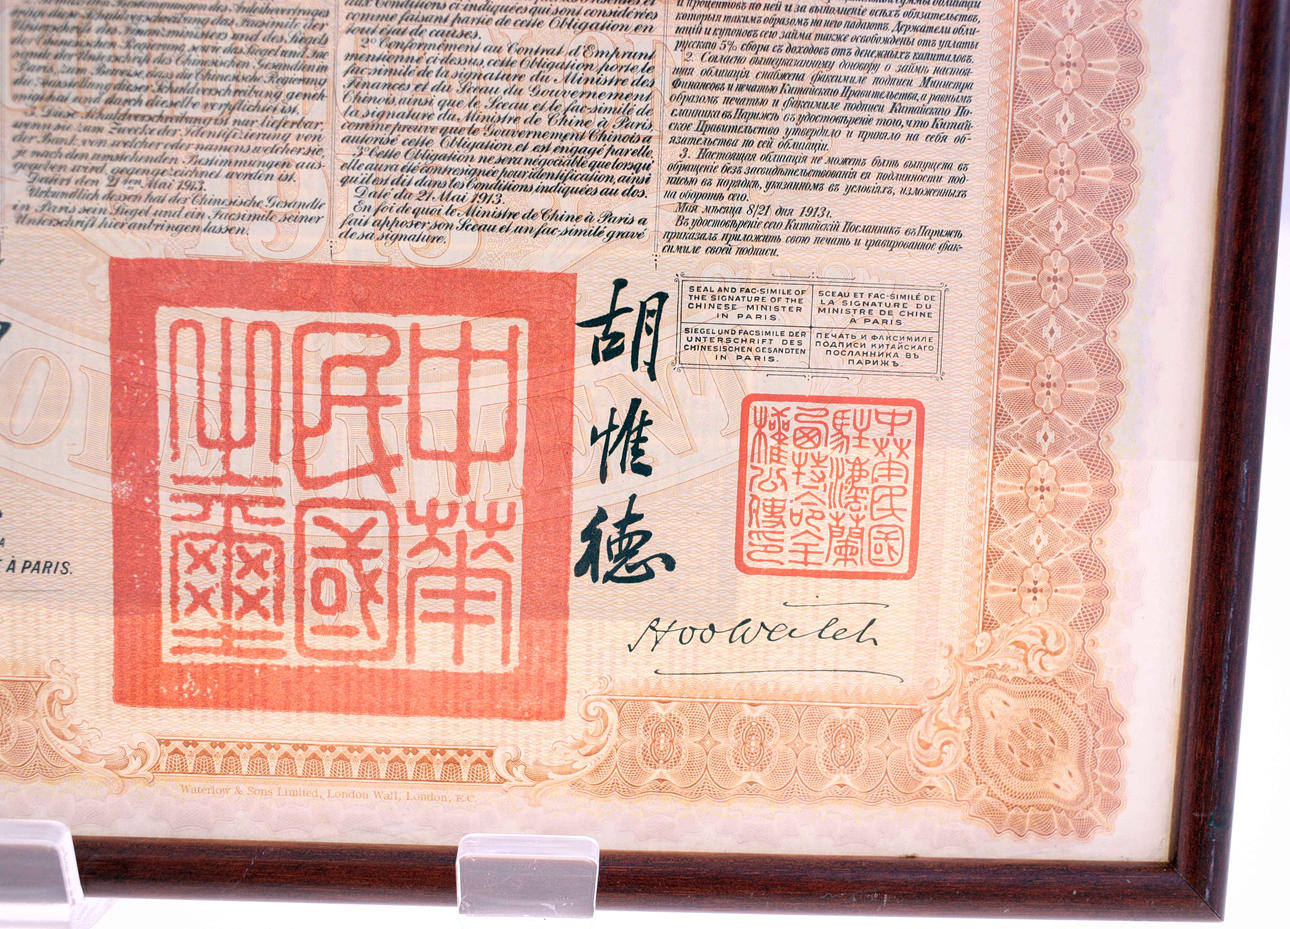 Schuldverschreibung das Facsimile der
Unterschrift des Finanzministers und des Siegels
der Chinesischen Regierung, sowie das Siegel und Fac-
Unterschrift des Chinesischen Gesandten in
Paris, zum Beweise, dass die Chinesische Regierung
die Ausstellung dieser Schuldverschreibung geneh-
migt hat und durch dieselbe verpflichtet ist.
3. Diese Schuldverschreibung ist nur lieferbar,
wenn sie zum Zwecke der Identifizierung von
der Bank, von welcher oder namens welcher sie
je nach den umstehenden Bestimmungen aus-
gegeben wird, gegengezeichnet worden ist.
Datirt den 21ten Mai 1913.
Urkundlich dessen hat der Chinesische Gesandte
in Paris sein Siegel und ein Facsimile seiner
Unterschrift hier anbringen lassen.
aux Conditions ci indiquées qui sont considérées
comme faisant partie de cette Obligation en
tout état de causes.
2º Conformément au Contrat d'Emprunt
mentionné ci-dessus, cette Obligation porte le
fac-similé de la signature du Ministre des
Finances et du Sceau du Gouvernement
Chinois ainsi que le Sceau et le fac-similé de
la signature du Ministre de Chine à Paris,
comme preuve que le Gouvernement Chinois a
autorisé cette Obligation et est engagé par elle.
3º Cette Obligation ne sera négociable que lorsqu'
elle aura été contresignée pour identification, ainsi
qu'il est dit dans les Conditions indiquées au dos.
Daté du 21 Mai 1913.
En foi de quoi le Ministre de Chine à Paris a
fait apposer son Sceau et un fac-similé gravé
de sa signature.
и процентовъ по ней и за выполнение всѣхъ обязательствъ,
которыя такимъ образомъ на него падаютъ. Держатели обли-
гацiй и купоновъ сего займа также освобождены отъ уплаты
русскаго 5% сбора съ доходовъ отъ денежныхъ капиталовъ.
2. Согласно вышеуказанному договору о займѣ настоя-
щая облигацiя снабжена факсимиле подписи Министра
Финансовъ и печатью Китайскаго Правительства, а равнымъ
образомъ печатью и факсимиле подписи Китайскаго По-
сланника въ Парижѣ въ удостовѣренiе того, что Китай-
ское Правительство утвердило и приняло на себя об-
язательства по сей облигацiи.
3. Настоящая облигацiя не можетъ быть выпущена въ
обращенiе безъ засвидѣтельствованiя ея подлинности под-
писью въ порядкѣ, указанномъ въ условiяхъ, изложенныхъ
на оборотѣ сего.
Мая мѣсяца 8/21 дня 1913 г.
Въ удостовѣренiе сего Китайскiй Посланникъ въ Парижѣ
приказалъ приложить свою печать и гравированное фак-
симиле своей подписи.
中華
民國
之璽
胡惟德
SEAL AND FAC-SIMILE OF
THE SIGNATURE OF THE
CHINESE MINISTER
IN PARIS.
SCEAU ET FAC-SIMILÉ DE
LA SIGNATURE DU
MINISTRE DE CHINE
À PARIS
SIEGEL UND FACSIMILE DER
UNTERSCHRIFT DES
CHINESISCHEN GESANDTEN
IN PARIS.
ПЕЧАТЬ И ФАКСИМИЛЕ
ПОДПИСИ КИТАЙСКАГО
ПОСЛАННИКА ВЪ
ПАРИЖѢ.
中華民國
駐法蘭
西特命全
權公使印
Hoo Wei Teh
À PARIS.
Waterlow & Sons Limited, London Wall, London, E.C.